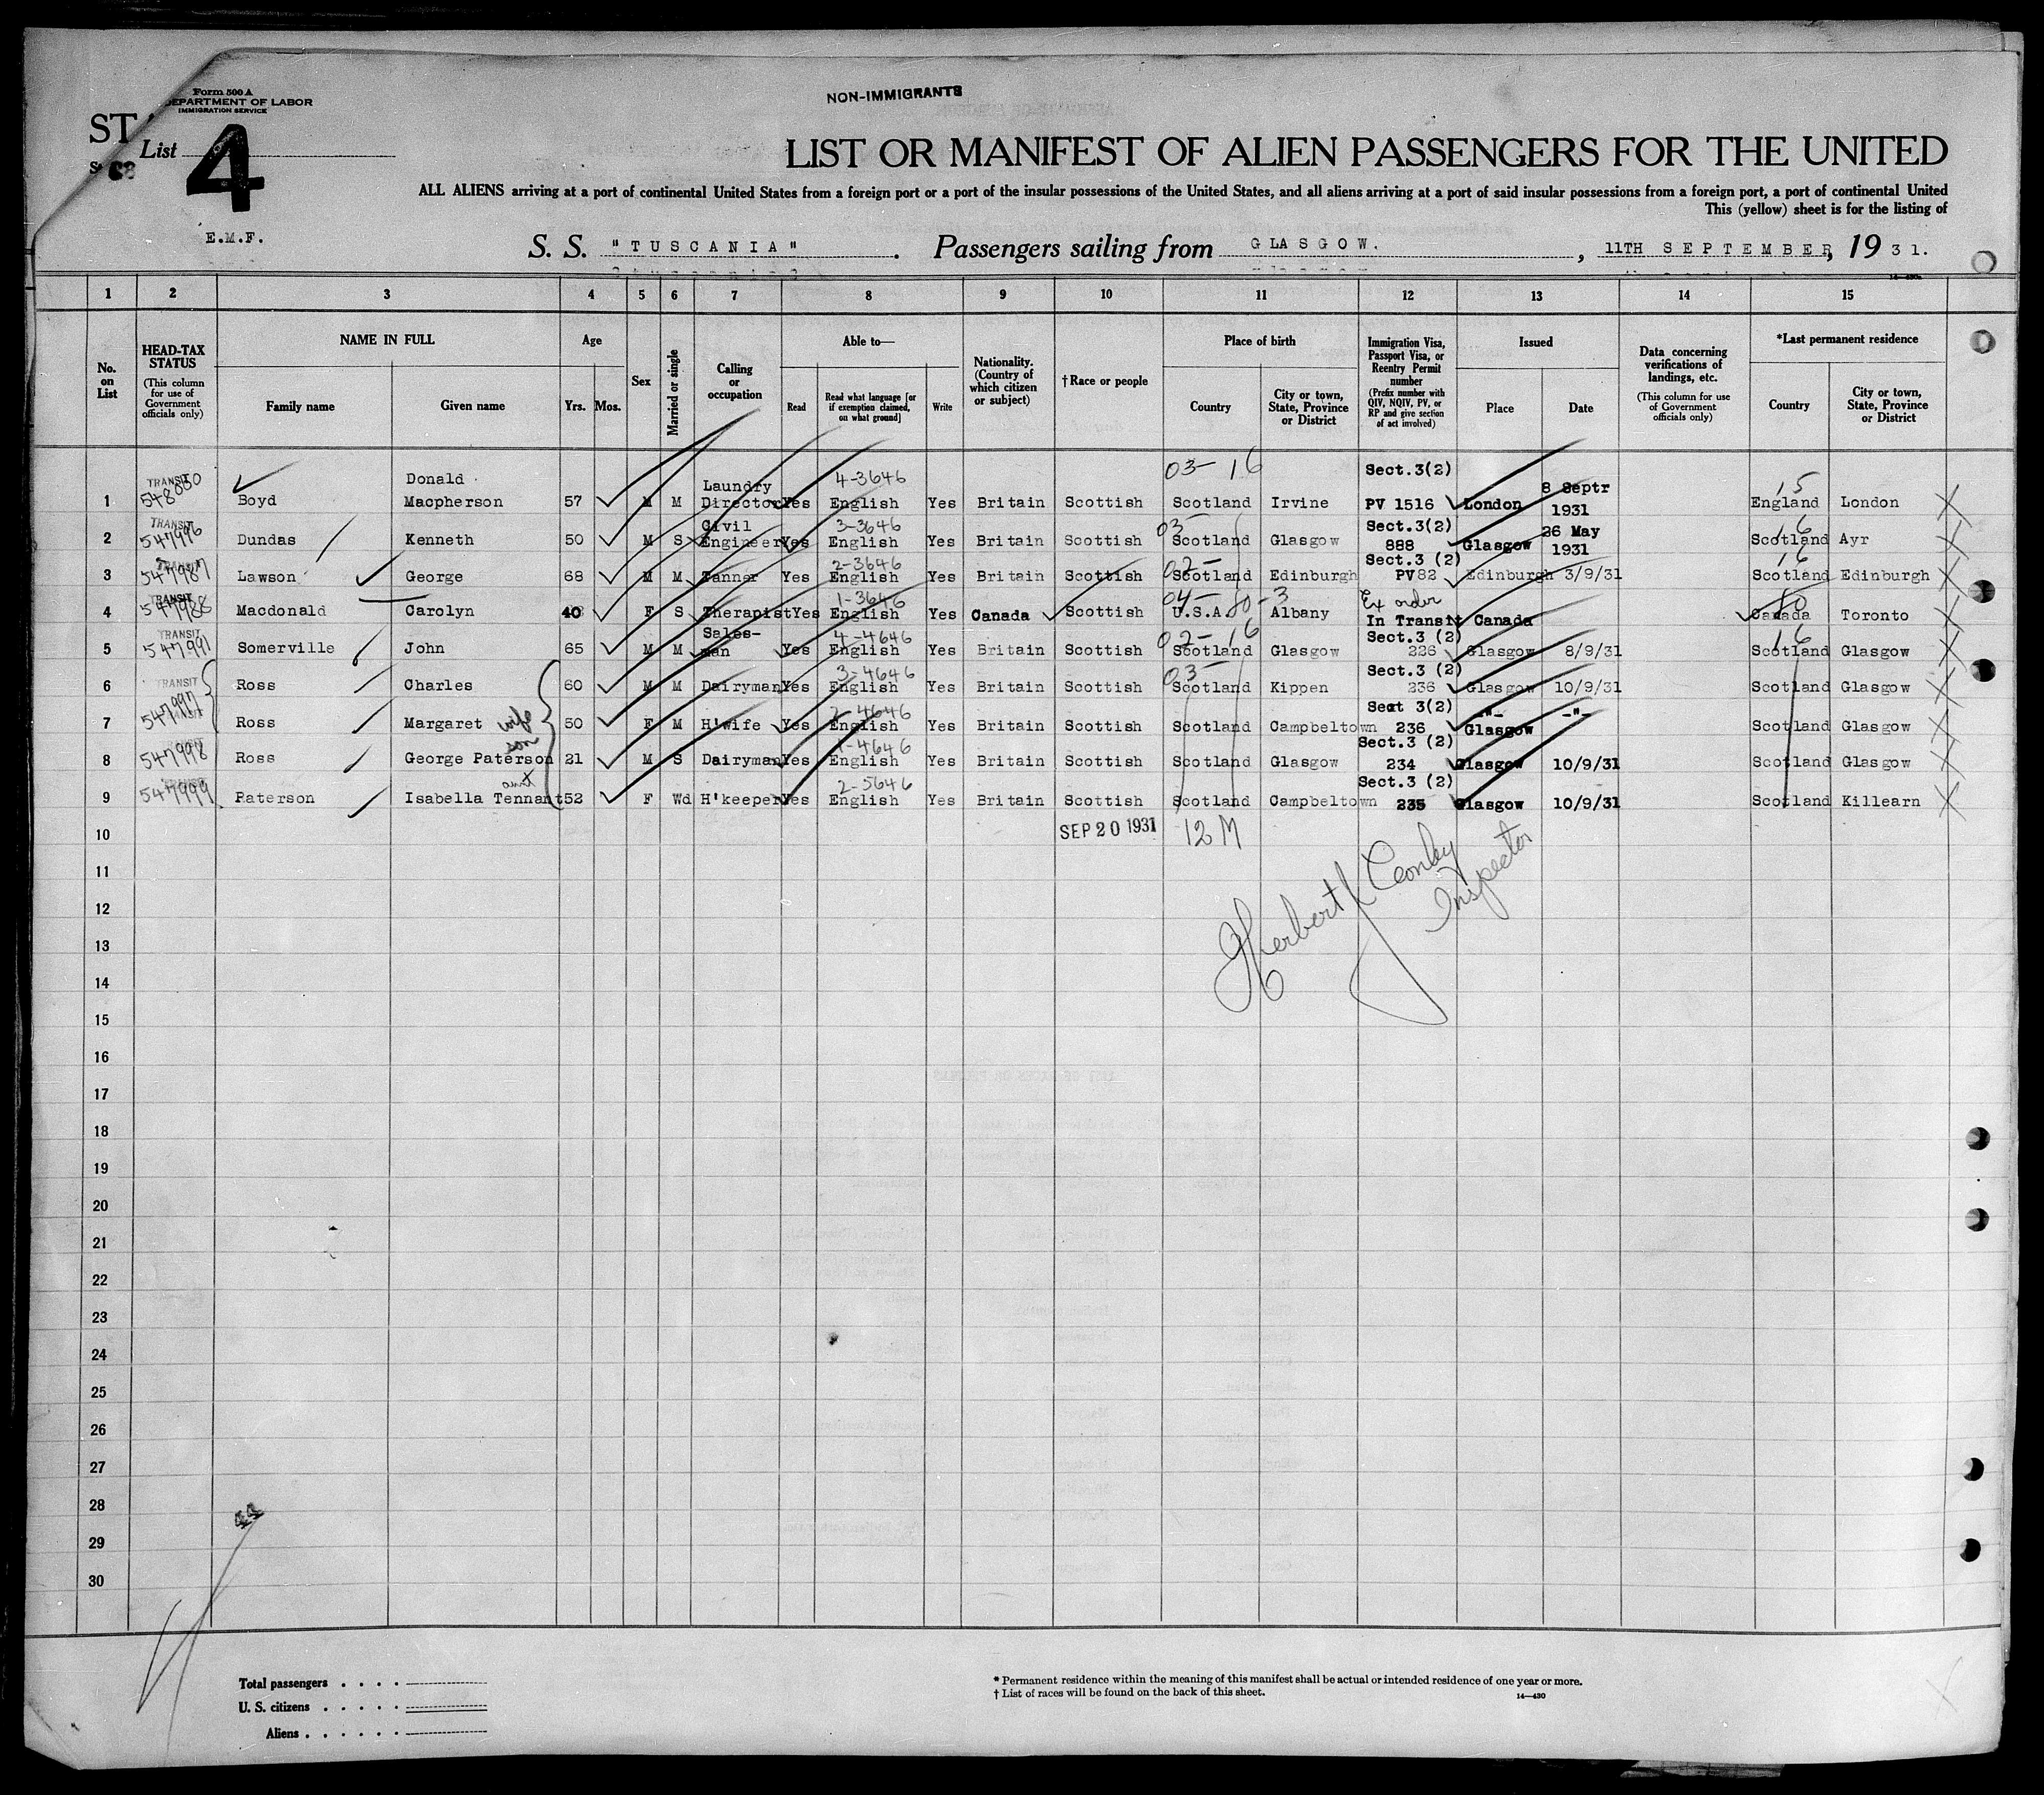 Form 500 A
DEPARTMENT OF LABOR
IMMIGRATION SERVICE
NON-IMMIGRANTS
ST
List 4
LIST OR MANIFEST OF ALIEN PASSENGERS FOR THE UNITED
ALL ALIENS arriving at a port of continental United States from a foreign port or a port of the insular possessions of the United States, and all aliens arriving at a port of said insular possessions from a foreign port, a port of continental United
This (yellow) sheet is for the listing of
E.M.F.
S. S. "TUSCANIA". Passengers sailing from GLASGOW., 11TH SEPTEMBER, 1931.
1 2 3 4 5 6 7 8 9 10 11 12 13 14 15
No. on List
HEAD-TAX STATUS (This column for use of Government officials only)
NAME IN FULL Family name Given name
Age Yrs. Mos.
Sex
Married or single
Calling or occupation
Able to— Read Read what language [or if exemption claimed, on what ground] Write
Nationality. (Country of which citizen or subject)
†Race or people
Place of birth Country City or town, State, Province or District
Immigration Visa, Passport Visa, or Reentry Permit number (Prefix number with QIV, NQIV, PV, or RP and give section of act involved)
Issued Place Date
Data concerning verifications of landings, etc. (This column for use of Government officials only)
*Last permanent residence Country City or town, State, Province or District
1 TRANSIT 548080 Boyd Donald Macpherson 57 M M Laundry Director Yes 4-3646 English Yes Britain Scottish 03-16 Scotland Irvine Sect.3(2) PV 1516 London 8 Septr 1931 15 England London
2 TRANSIT 547996 Dundas Kenneth 50 M S Civil Engineer Yes 3-3646 English Yes Britain Scottish 03- Scotland Glasgow Sect.3(2) 888 Glasgow 26 May 1931 16 Scotland Ayr
3 547987 Lawson George 68 M M Tanner Yes 2-3646 English Yes Britain Scottish 02- Scotland Edinburgh Sect.3 (2) PV82 Edinburgh 3/9/31 16 Scotland Edinburgh
4 TRANSIT 547988 Macdonald Carolyn 40 F S Therapist Yes 1-3646 English Yes Canada Scottish 04- 80-3 U.S.A. Albany Ex order In Transit Canada 80 Canada Toronto
5 TRANSIT 547991 Somerville John 65 M M Sales-man Yes 4-4646 English Yes Britain Scottish 02-16 Scotland Glasgow Sect.3 (2) 226 Glasgow 8/9/31 16 Scotland Glasgow
6 TRANSIT 547997 Ross Charles 60 M M Dairyman Yes 3-4646 English Yes Britain Scottish 03- Scotland Kippen Sect.3 (2) 236 Glasgow 10/9/31 Scotland Glasgow
7 TRANSIT Ross Margaret wife 50 F M H'wife Yes 2-4646 English Yes Britain Scottish Scotland Campbeltown Sect 3(2) 236 -"- Glasgow -"- Scotland Glasgow
8 547998 Ross George Paterson son 21 M S Dairyman Yes 1-4646 English Yes Britain Scottish Scotland Glasgow Sect.3 (2) 234 Glasgow 10/9/31 Scotland Glasgow
9 547999 Paterson Isabella Tennant aunt 52 F Wd H'keeper Yes 2-5646 English Yes Britain Scottish Scotland Campbeltown Sect.3 (2) 235 Glasgow 10/9/31 Scotland Killearn
10 SEP 20 1931 12 M
11
12 Herbert Inspector
13
14
15
16
17
18
19
20
21
22
23
24
25
26
27
28 44
29
30
Total passengers
U. S. citizens
Aliens
* Permanent residence within the meaning of this manifest shall be actual or intended residence of one year or more.
† List of races will be found on the back of this sheet.
14—430